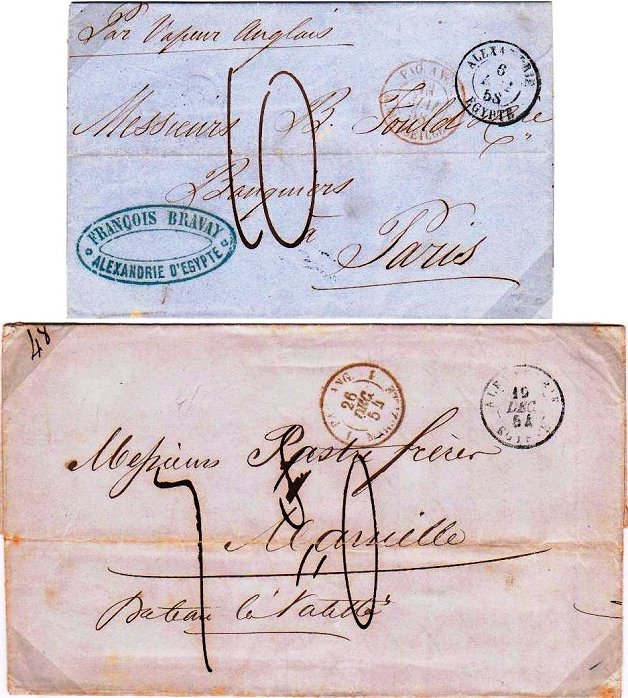 Par Vapeur Anglais
ALEXANDRIE
6
58
EGYPTE
PAQ. AN
Messieurs B. Fould
10
Banquiers
à
Paris
FRANÇOIS BRAVAY
ALEXANDRIE D'EGYPTE
48
ANG.
26
DEC.
54
19
DEC.
54
Messieurs Rastre frères
10
Marseille
Bateau le Valetta